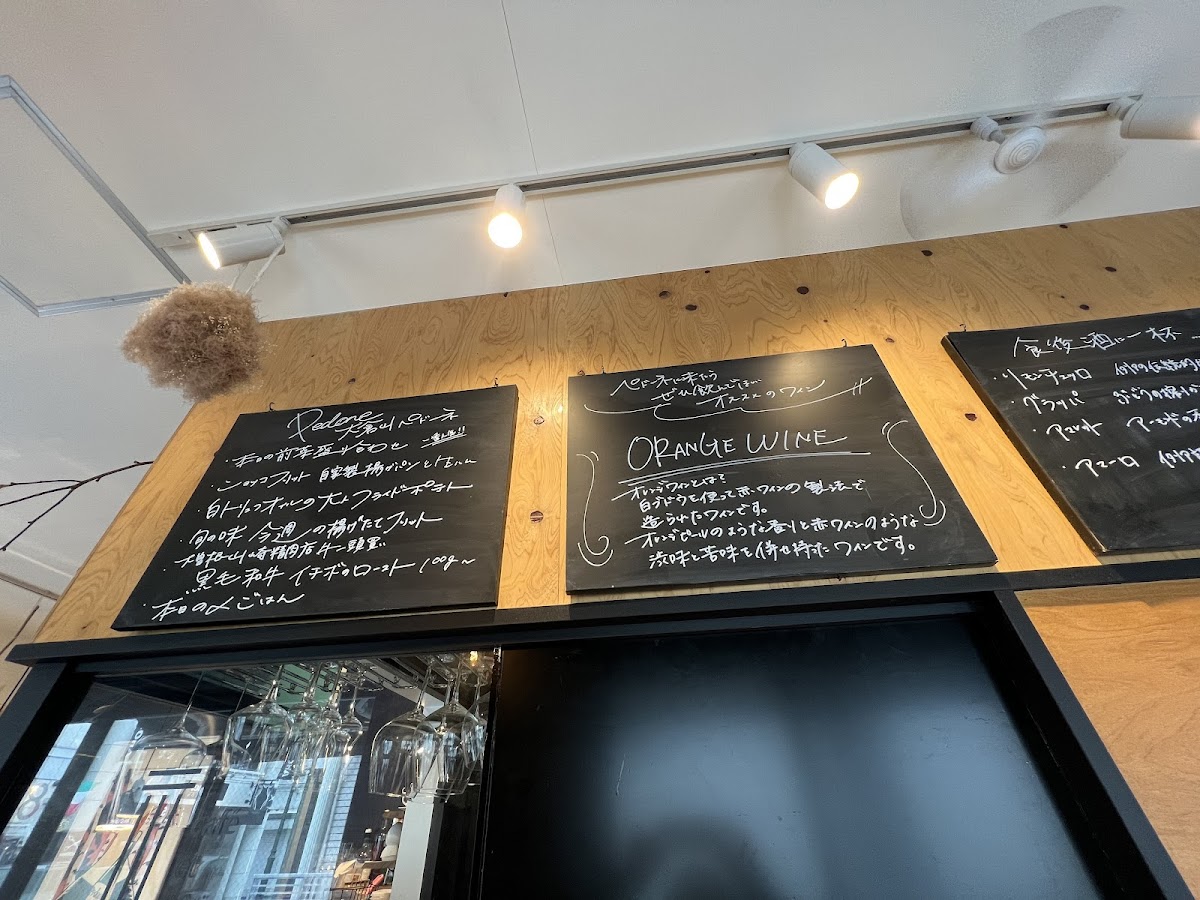 Pedone
大倉山ペドーネ
・本日の前菜盛り合わせ
・ニョッコフリット 自家製揚げパンと生ハム
・白トリュフオイルの大人フライドポテト
・旬の味 今週の揚げたてフリット
黒毛和牛イチボのロースト 100g〜
・本日の〆ごはん
ペドーネに来たら
ぜひ飲んでほしい
オススメのワイン
ORANGE WINE
オレンジワインとは?
白ブドウを使って赤ワインの製法で
造られたワインです。
オレンジピールのような香りと赤ワインのような
渋味と苦味を併せ持ったワインです。
食後酒に一杯…
・リモンチェッロ
・グラッパ
・アマレット
・アマーロ